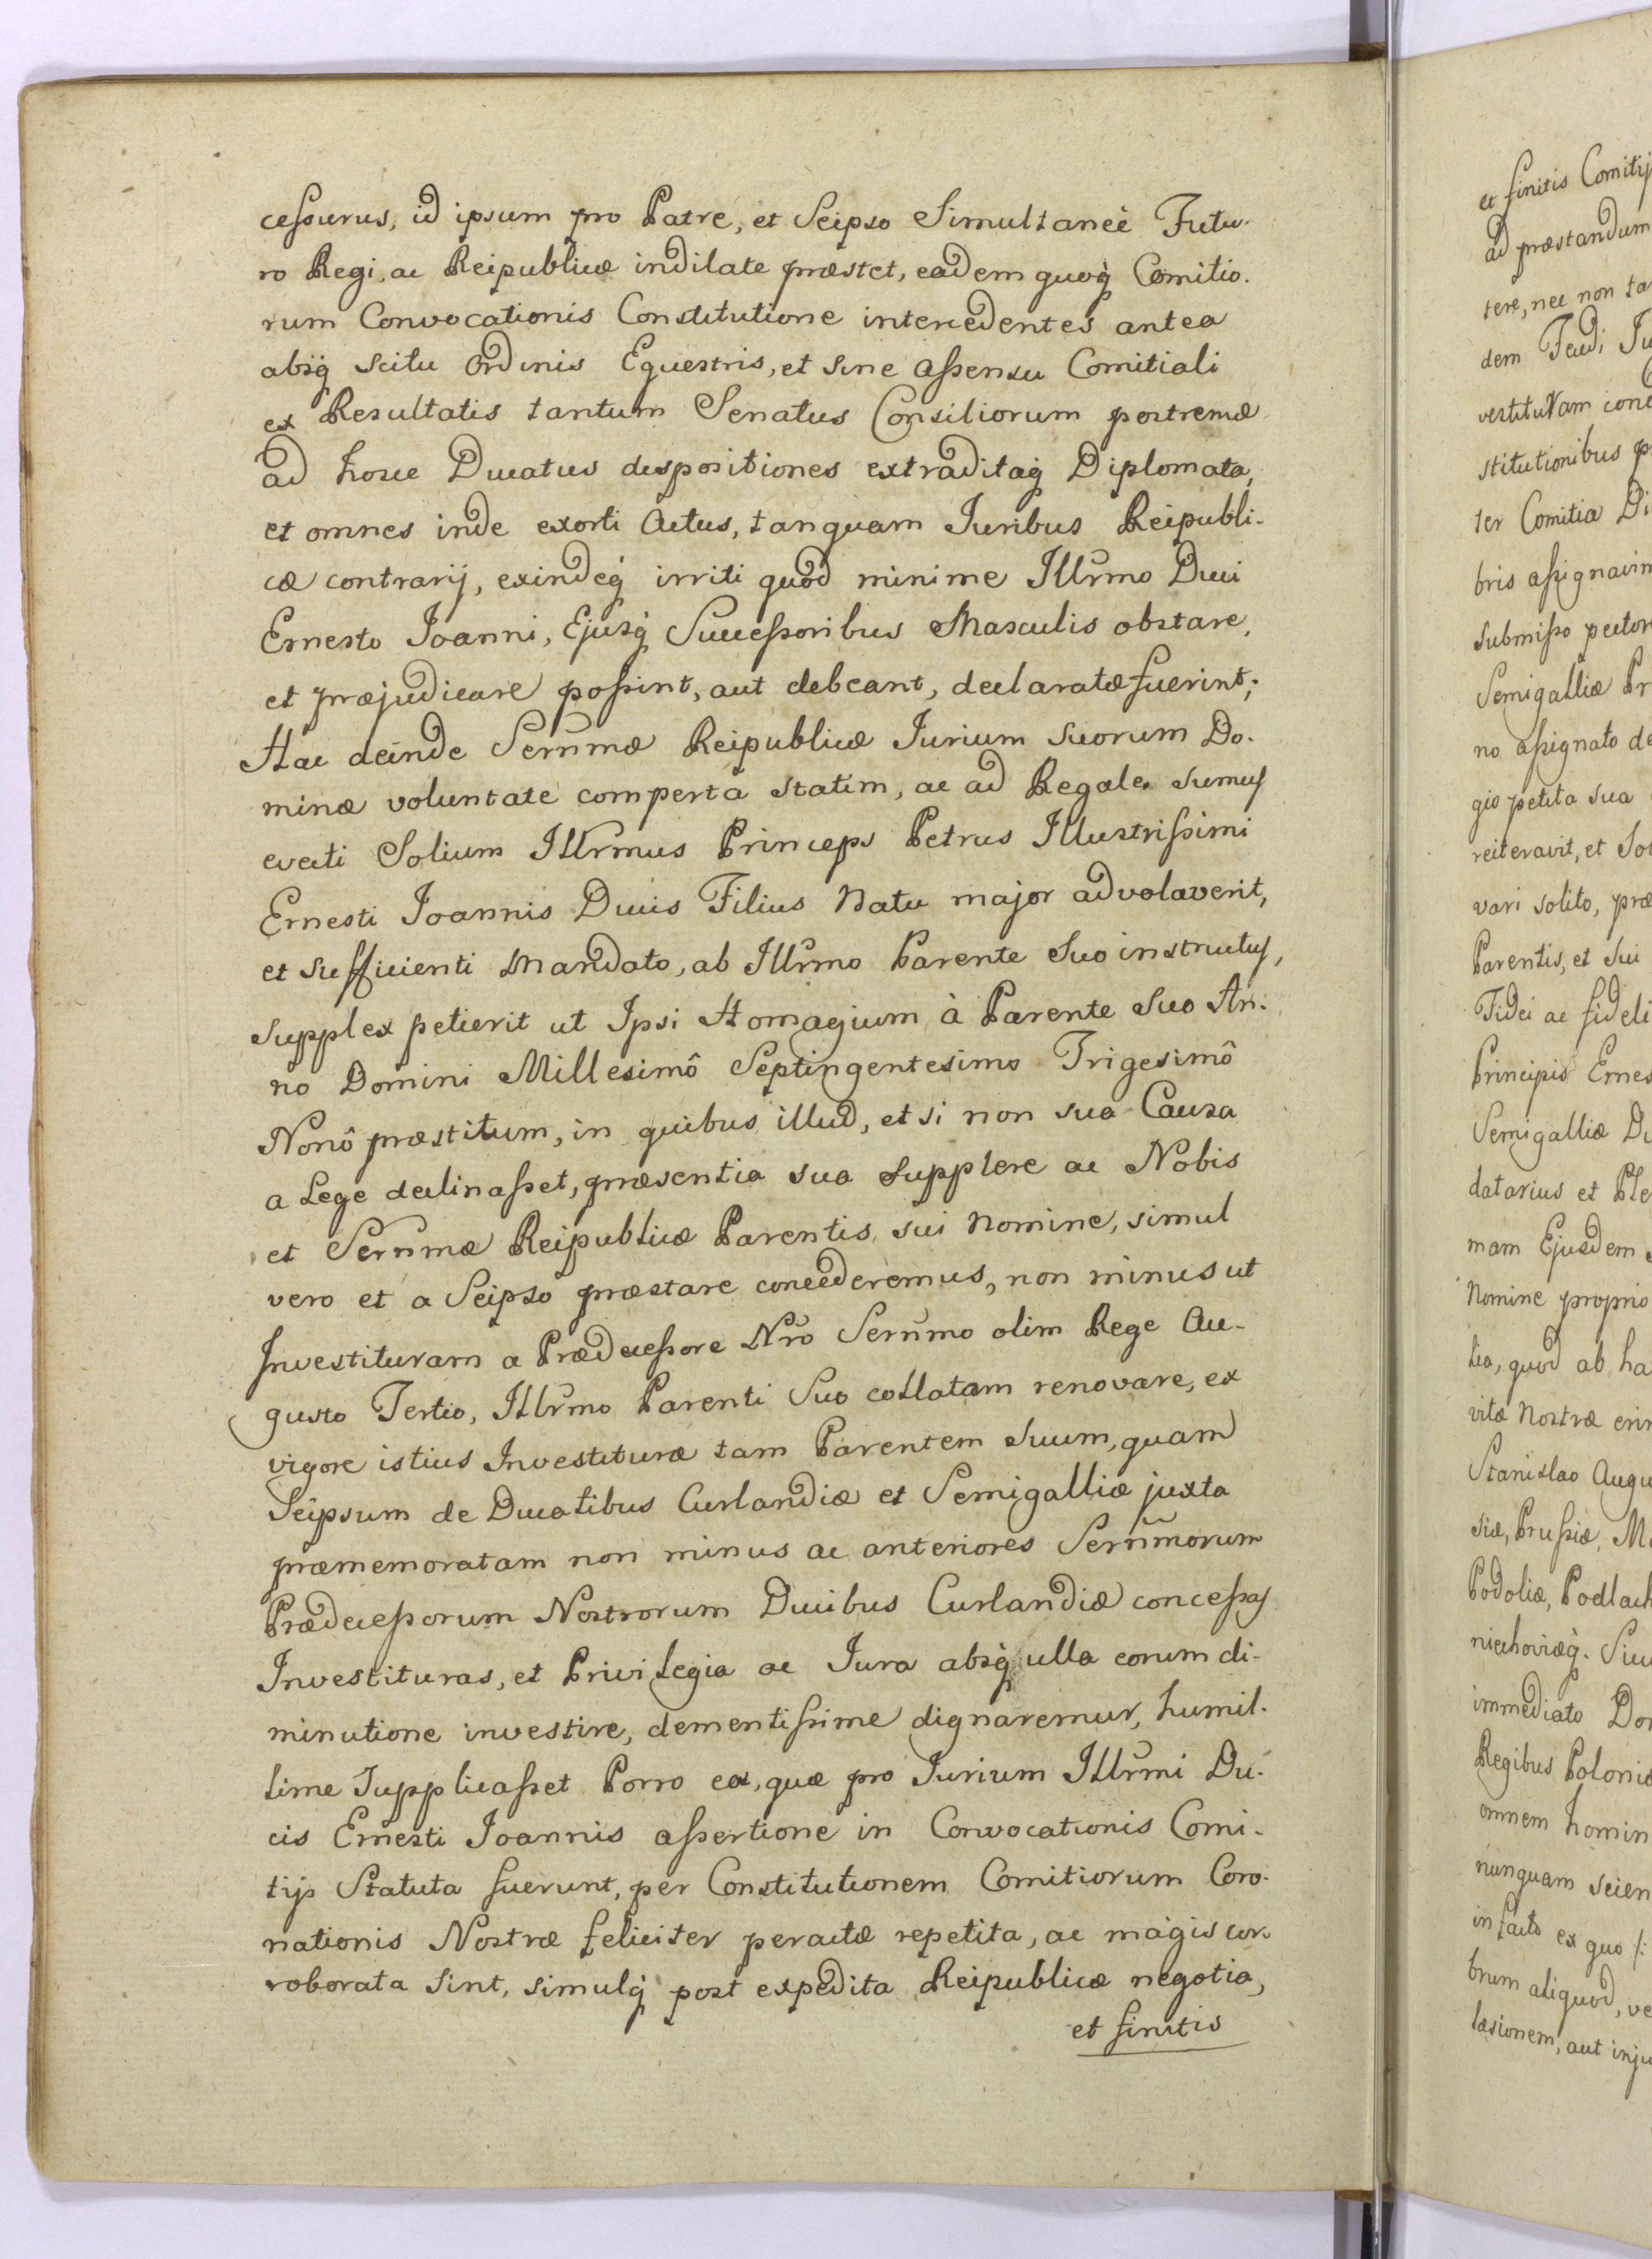 cessurus, id ipsum pro Patre, et Seipso Simultaneè Futu-
ro Regi, ac Reipublicæ indilate præstet, eadem quoq́ Comitio-
rum Convocationis Constitutione intercedentes antea
absq́ scitu Ordinis Equestris, et sine assensu Comitiali
ex Resultatis tantum Senatus Consiliorum postremæ
ad hosce Ducatus dispositiones extraditaq́ Diplomata,
et omnes inde exorti Actus, tanquam Juribus Reipubli-
cæ contrarij, exindeq́ irriti quod minime Illrmo Duci
Ernesto Joanni, Ejusq́ Successoribus Masculis obstare,
et præjudicare possint, aut debeant, declaratæ fuerint;
Hac deinde Serñmæ Reipublicæ Jurium suorum Do-
minæ voluntate compertâ statim, ac ad Regale sumus
evecti Solium Illrmus Princeps Petrus Illustrissimi
Ernesti Joannis Ducis Filius Natu major advolaverit,
et sufficienti Mandato, ab Illrmo Parente Suo instructus,
supplex petierit ut Ipsi Homagium à Parente Suo An-
no Domini Millesimô Septingentesimo Trigesimô
Nonô præstitum, in quibus illud, et si non sua Causa
a Lege declinasset, præsentia sua supplere ac Nobis
et Serñmæ Reipublicæ Parentis sui Nomine, simul
vero et a Seipso præstare concederemus, non minus ut
Investituram a Prædecessore Nr̃o Serñmo olim Rege Au-
gusto Tertio, Illrmo Parenti Suo collatam renovare, ex
vigore istius Investituræ tam Parentem Suum, quam
Seipsum de Ducatibus Curlandiæ et Semigalliæ juxta
præmemoratam non minus ac anteriores Serñmorum
Prædecessorum Nostrorum Ducibus Curlandiæ concessas
Investituras, et Privilegia ac Jura absq́ ulla eorum di-
minutione investire, clementissime dignaremur, humil-
lime Supplicasset Porro ea, quæ pro Jurium Illrmi Du-
cis Ernesti Joannis assertione in Convocationis Comi-
tijs Statuta fuerunt, per Constitutionem Comitiorum Coro-
nationis Nostræ feliciter peractæ repetita, ac magis cor-
roborata sint, simulq́ post expedita Reipublicæ negotia,
et finitis
et finitis Comitij
ad præstandum
tere, nec non ta
dem Feudi Ju
vestituram conc
stitutionibus p
ter Comitia Di
bris assignavim
submisso pector
Semigalliæ Pr
no assignato de
gio petita sua
reiteravit, et Sol
vari solito, præ
Parentis, et Sui
Fidei ac fideli
Principis Ernes
Semigalliæ Du
datarius et Ple
mam Ejusdem
Nomine proprio
lia, quod ab ha
vitæ Nostræ erim
Stanislao Augu
siæ, Prussiæ, Ma
Podoliæ, Podlach
niechoviæq́. Suc
immediato Dom
Regibus Poloniæ
omnem homin
nunquam scien
in facto ex quo /:
brum aliquod, ve
læsionem, aut inju